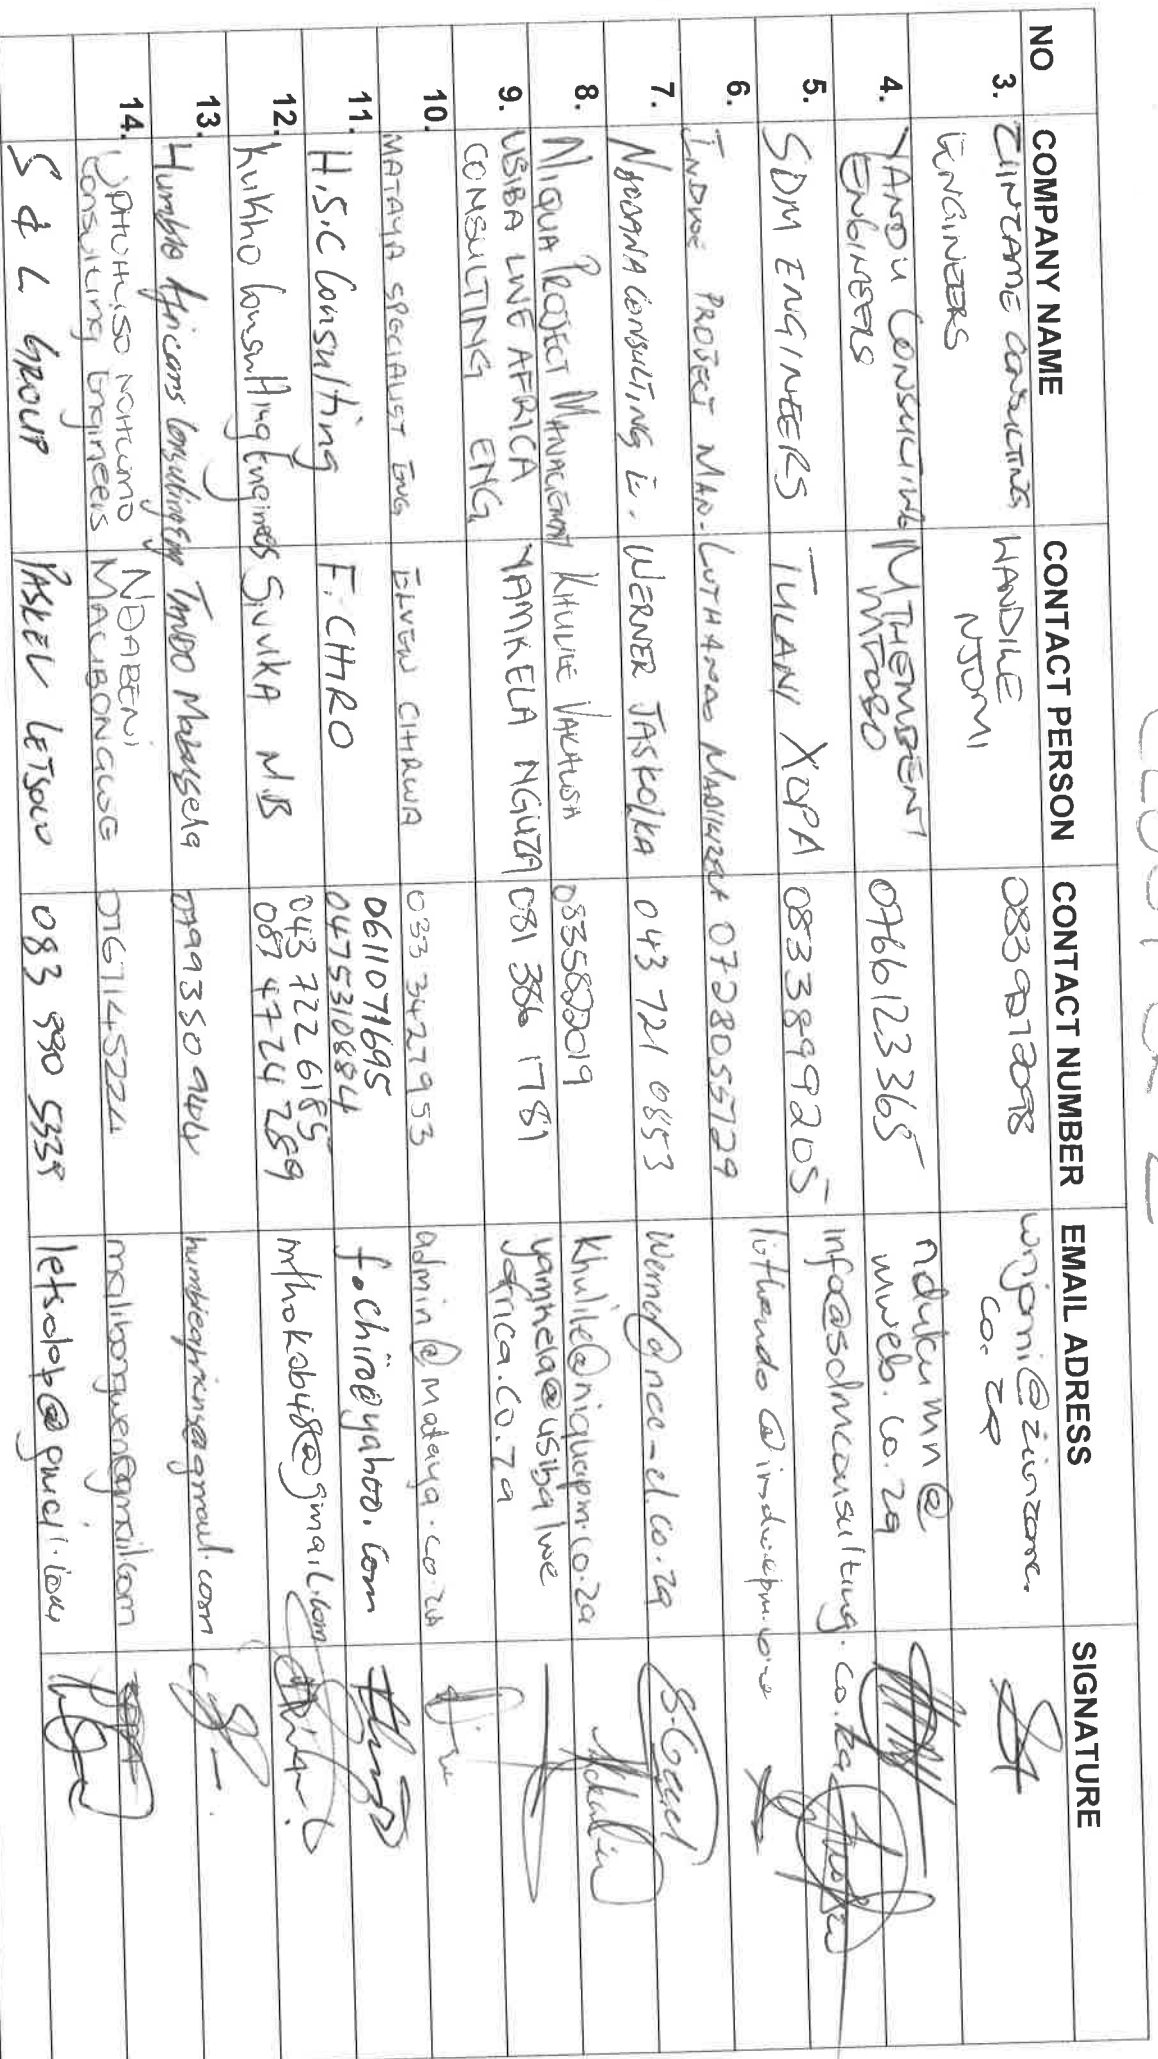 NO COMPANY NAME CONTACT PERSON CONTACT NUMBER EMAIL ADRESS SIGNATURE
3. CONSULTING ENGINEERS WANDILE NJOMI
4. YANDU CONSULTING ENGINEERS MTHEMBENI MTOBO 0766123365 ndukumn@mweb.co.za
5. SDM ENGINEERS TULANI XOPA 0833899205 info@sdmconsulting.co.za
6. INDWE PROJECT MAN. 0728055729
7. CONSULTING E. WERNER JASKOLKA 043 721 0853
8. NIQUA PROJECT MANAGEMENT KHULILE VAKALISA 0835822019 khulile@niquapm.co.za
9. USIBA LWE AFRICA CONSULTING ENG. YAMKELA NGUZA 081 386 1781 yamkela@usibalweafrica.co.za
10. MATAYA SPECIALIST ENG CHIRWA 033 3427953 admin@mataya.co.za
11. H.S.C Consulting F. CHIRO 0611071695 0475310884 f.chiro@yahoo.com
12. Kukho Consulting Engineers SIVUKA N.B 043 722 6185 087 4724 289
13. Humble Africans Consulting eng TMDO Mabasela 0799350944
14. UPHUHLISO NOHLUMO Consulting Engineers NDABENI MALIBONGWE 0767145224 malibongwen@gmail.com
S & L GROUP 083 990 5339 letsolop@gmail.com